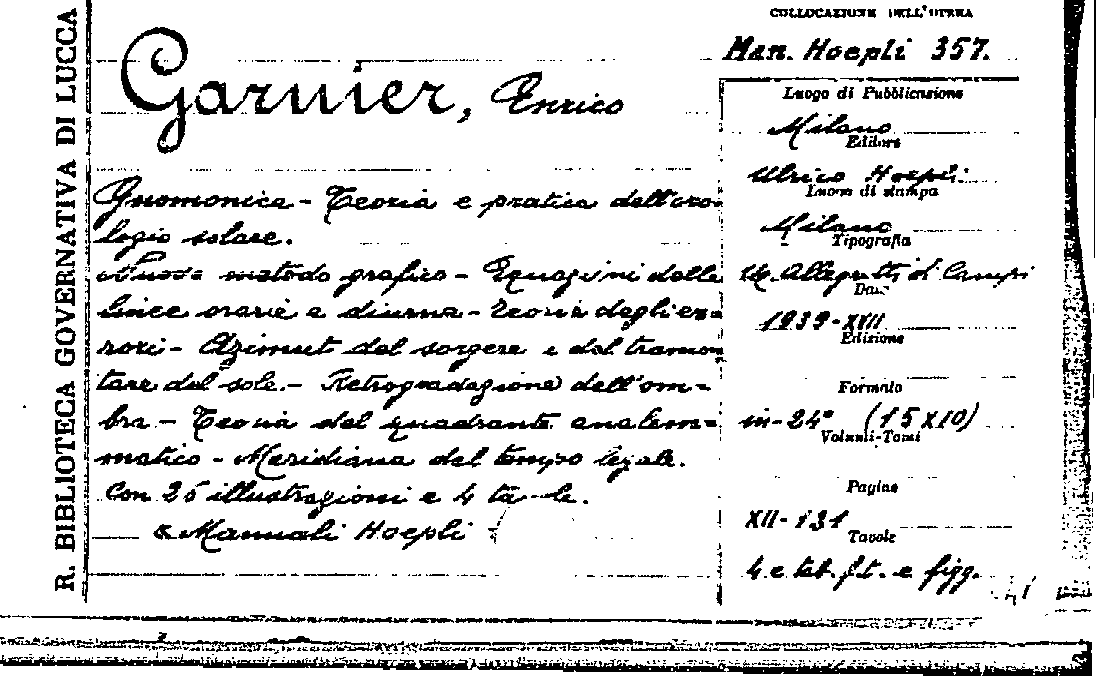 R. BIBLIOTECA GOVERNATIVA DI LUCCA
Garnier, Enrico
Gnomonica - Teoria e pratica dell'oro-
logio solare.
Nuovo metodo grafico - Equazioni delle
linee orarie e diurna - Teoria degli er=
rori - Azimut del sorgere e del tramon=
tare del sole. - Retrogradazione dell'om=
bra - Teoria del quadrante analem=
matico - Meridiana del tempo legale.
Con 25 illustrazioni e 4
Manuali Hoepli
COLLOCAZIONE DELL'OPERA
Man. Hoepli 357.
Luogo di Pubblicazione
Milano
Editore
Ulrico Hoepli
Luogo di stampa
Milano
Tipografia
Allegretti di Campi
Data
1939-XVII
Edizione
Formato
in-24° (15X10)
Volumi-Tomi
Pagine
XII-131
Tavole
4 e tab. f.t. e figg.